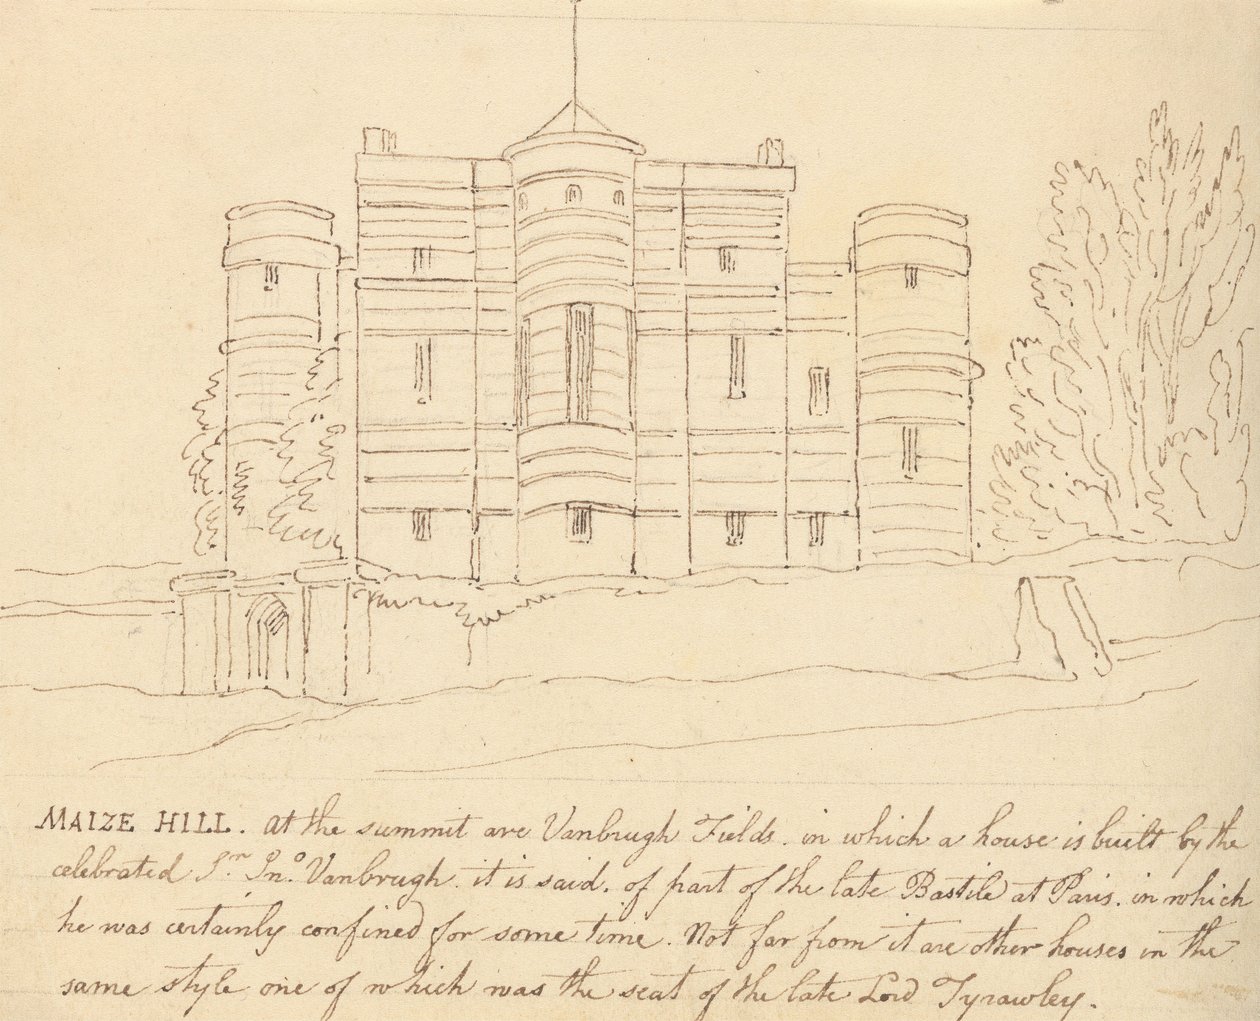 MAIZE HILL. At the summit are Vanbrugh Fields. in which a house is built by the
celebrated Sr. Jno. Vanbrugh. it is said. of part of the late Bastile at Paris. in which
he was certainly confined for some time. Not far from it are other houses in the
same style one of which was the seat of the late Lord Tyrawley.